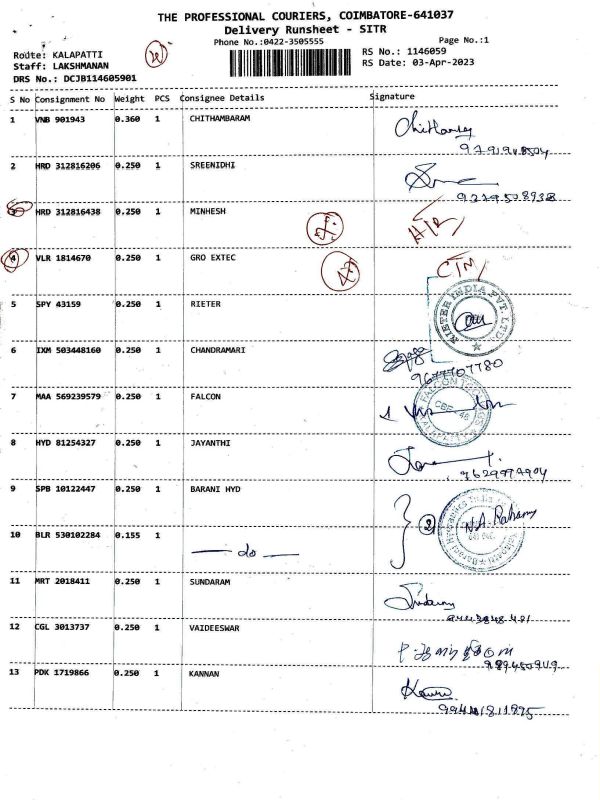 THE PROFESSIONAL COURIERS, COIMBATORE-641037
Delivery Runsheet - SITR
Phone No.:0422-3505555 Page No.:1
Route: KALAPATTI RS No.: 1146059
Staff: LAKSHMANAN RS Date: 03-Apr-2023
DRS No.: DCJB114605901
S No Consignment No Weight PCS Consignee Details Signature
1 VNB 901943 0.360 1 CHITHAMBARAM
2 HRD 312816206 0.250 1 SREENIDHI
HRD 312816438 0.250 1 MINHESH
4 VLR 1814670 0.250 1 GRO EXTEC
5 SPY 43159 0.250 1 RIETER
RIETER INDIA PVT. LTD
6 IXM 503448160 0.250 1 CHANDRAMARI
9677707780
7 MAA 569239579 0.250 1 FALCON
FALCON
8 HYD 81254327 0.250 1 JAYANTHI
9 SPB 10122447 0.250 1 BARANI HYD
2
10 BLR 530102284 0.155 1 — do —
11 MRT 2018411 0.250 1 SUNDARAM
12 CGL 3013737 0.250 1 VAIDEESWAR
13 PDK 1719866 0.250 1 KANNAN